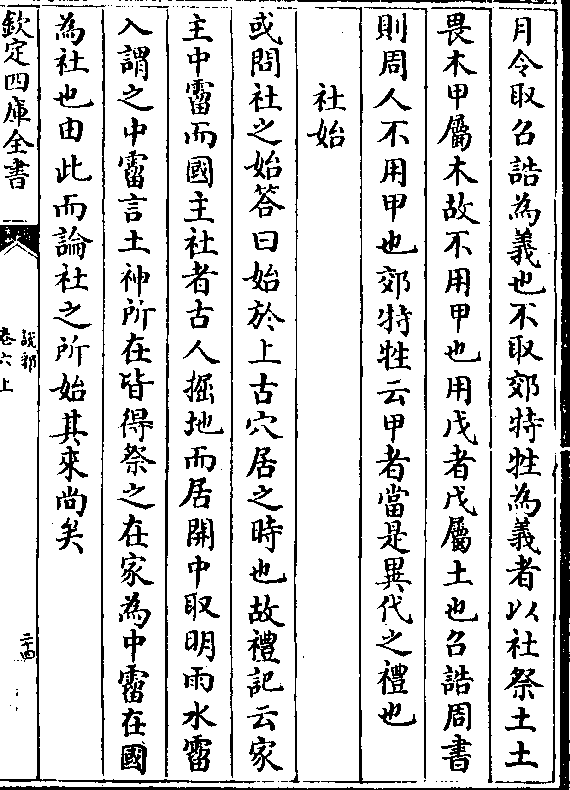 月令取召誥為義也不取郊特牲為義者以社祭土土
畏木甲屬木故不用甲也用戊者戊屬土也召誥周書
則周人不用甲也郊特牲云甲者當是異代之禮也
社始
或問社之始答曰始於上古穴居之時也故禮記云家
主中霤而國主社者古人掘地而居開中取明雨水霤
入謂之中霤言土神所在皆得祭之在家為中霤在國
為社也由此而論社之所始其來尚矣
欽定四庫全書
說郛
卷六上
二十四